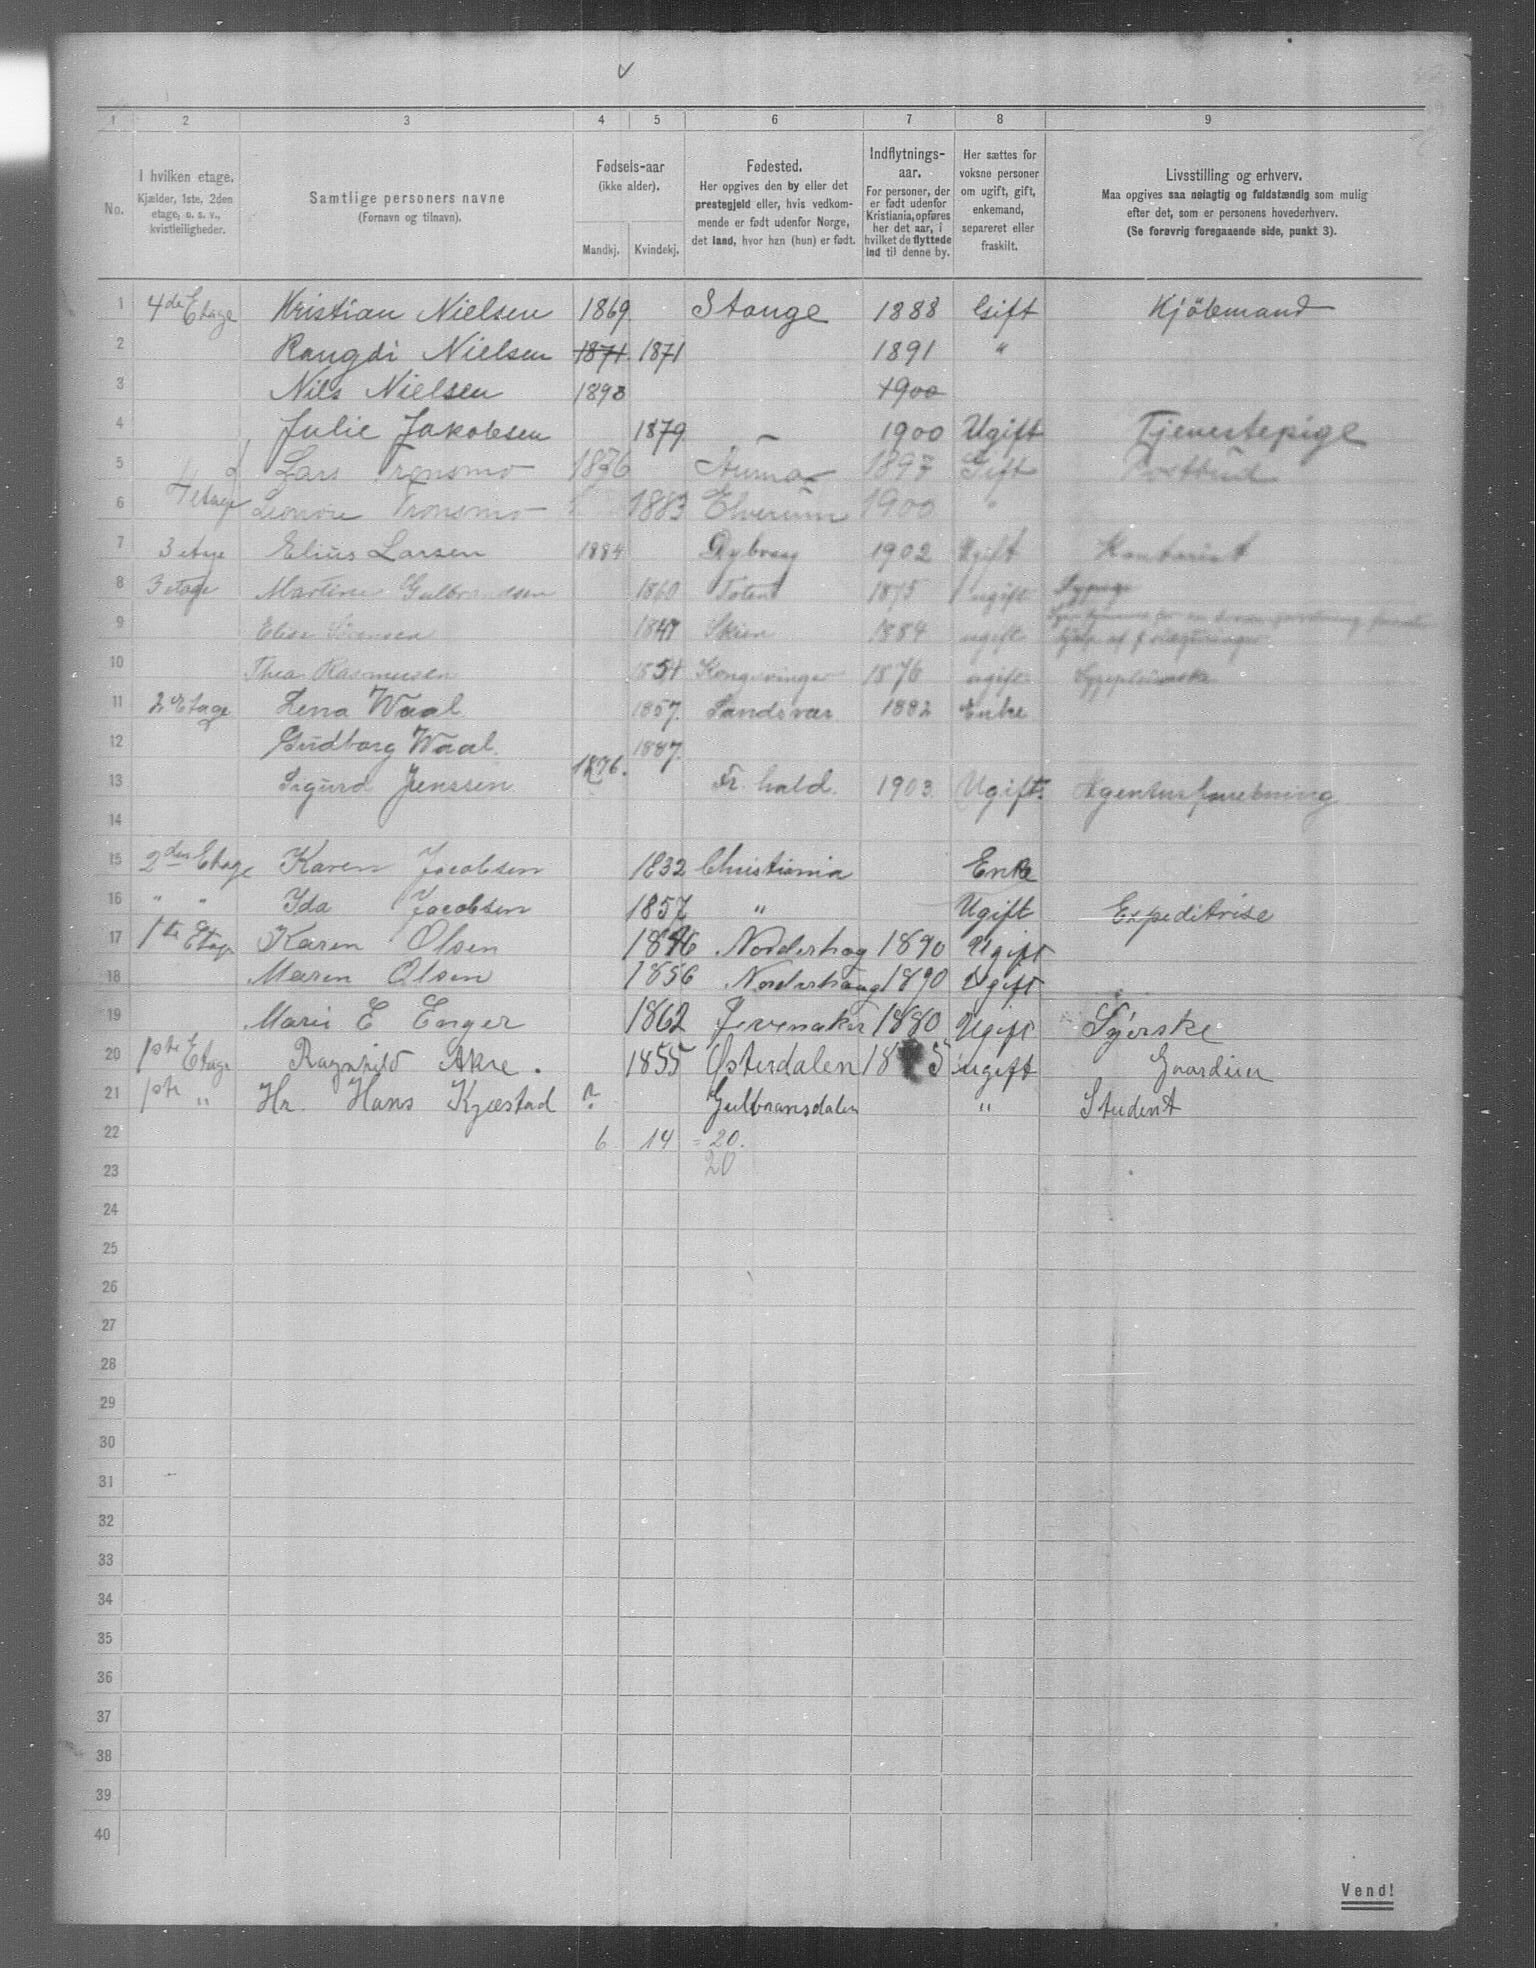 1 2 3 4 5 6 7 8 9
No.
I hvilken etage.
Kjælder, 1ste, 2den
etage, o. s. v.,
kvistleiligheder.
Samtlige personers navne
(Fornavn og tilnavn).
Fødsels-aar
(ikke alder).
Mandkj. Kvindekj.
Fødested.
Her opgives den by eller det
prestegjeld eller, hvis vedkom-
mende er født udenfor Norge,
det land, hvor han (hun) er født.
Indflytnings-
aar.
For personer, der
er født udenfor
Kristiania, opføres
her det aar, i
hvilket de flyttede
ind til denne by.
Her sættes for
voksne personer
om ugift, gift,
enkemand,
separeret eller
fraskilt.
Livsstilling og erhverv.
Maa opgives saa nøiagtig og fuldstændig som mulig
efter det, som er personens hovederhverv.
(Se forøvrig foregaaende side, punkt 3).
1 4de Etage Kristian Nielsen 1869 Stange 1888 Gift Kjöbmand
2 Rangdi Nielsen 1871 1871 1891 "
3 Nils Nielsen 1893 1900
4 Julie Jakobsen 1879 – 1900 Ugift Tjenestepige
5 Lars Tronsmo 1876 1897 Gift Postbud
6 1 etage Leonore Tronsmo 1883 Elverum 1900 "
7 3 etage Elius Larsen 1884 Dybvaag 1902 Ugift Kontorist
8 3 etage Martine Gulbrandsen 1860 Toten 1875 ugift Sypige
9 Elise Sørensen Skien 1884 ugift
10 Thea Rasmussen 1854 Kongsvinger 1876 ugift
11 2 Etage Lena Waal 1857. Sandsvær 1882 Enke
12 Gudborg Waal. 1887.
13 Sigurd Jenssen 1876. Fr. hald. 1903 Ugift. Agenturforretning
14
15 2den Etage Karen Jacobsen 1832 Christiania Enke
16 " " Ida Jacobsen 1857 " Ugift Expeditrise
17 1ste Etage Karen Olsen 1846 Norderhog 1890 Ugift
18 Maren Olsen 1856 Norderhaug 1890 Ugift
19 Marie E Enger 1862 Jevenaker 1880 Ugift Syerske
20 1ste Etage Ragnhild Akre. 1855 Østerdalen ugift
21 1ste " Hr. Hans Kjæstad ? Gulbransdalen " Student
22 6 14 = 20.
20
23
24
25
26
27
28
29
30
31
32
33
34
35
36
37
38
39
40
Vend!